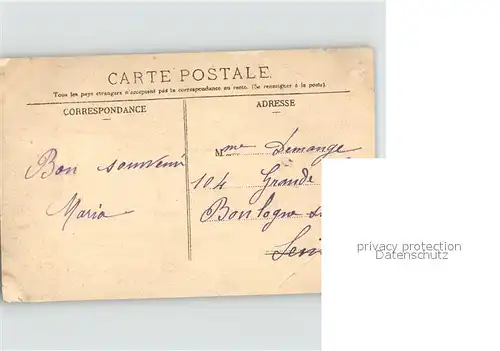 CARTE POSTALE.
Tous les pays étrangers n'acceptent pas la correspondance au recto. (Se renseigner à la poste).
CORRESPONDANCE
ADRESSE
Bon souvenir
Maria
Mme Demange
104 Grande
Boulogne
privacy protection
Datenschutz